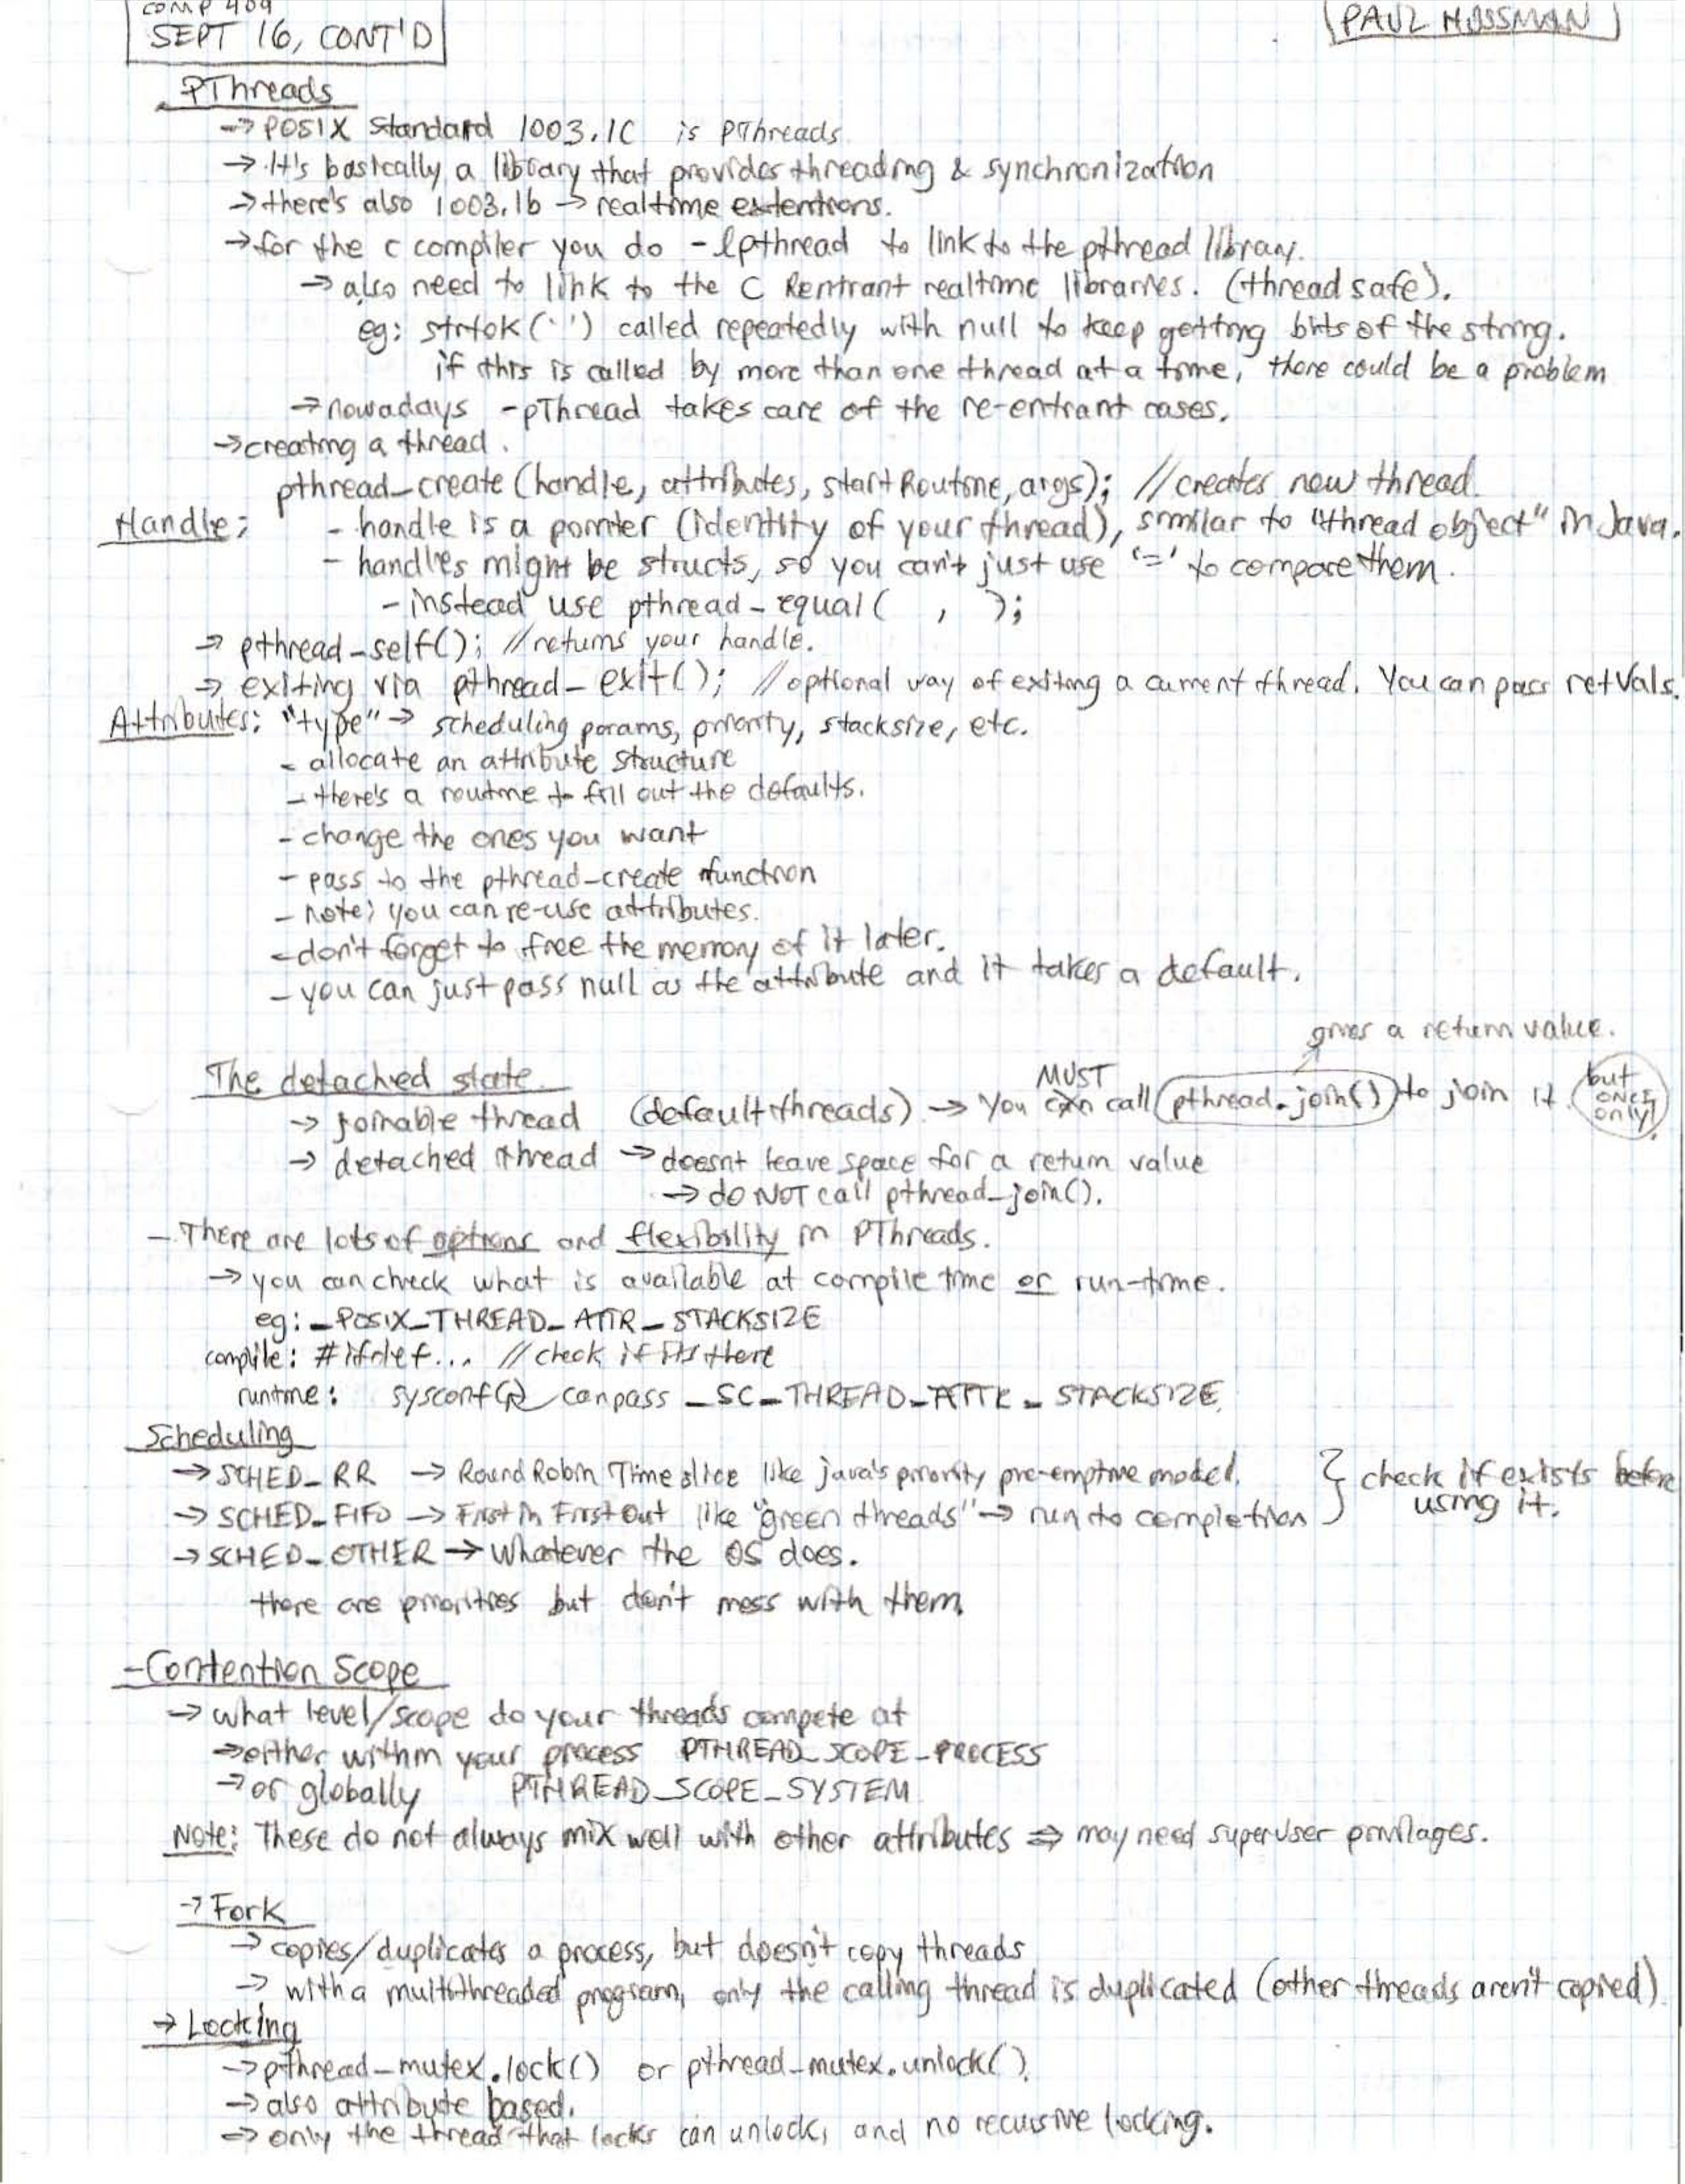 COMP 409
SEPT 16, CONT'D
PAUL HUSSMAN
PThreads
→ POSIX Standard 1003.1C is PThreads
→ It's basically a library that provides threading & synchronization
→ there's also 1003.1b → realtime extentions.
→ for the c compiler you do -lpthread to link to the pthread library.
→ also need to link to the C Rentrant realtime libraries. (thread safe).
eg: strtok(' ') called repeatedly with null to keep getting bits of the string.
if this is called by more than one thread at a time, there could be a problem
→ nowadays -pThread takes care of the re-entrant cases.
→ creating a thread.
pthread_create (handle, attributes, startRoutine, args); // creates new thread.
Handle: - handle is a pointer (identity of your thread), similar to "thread object" in Java.
- handles might be structs, so you can't just use '=' to compare them.
- instead use pthread_equal( , );
→ pthread_self(); // returns your handle.
→ exiting via pthread_exit(); // optional way of exiting a current thread. You can pass retVals.
Attributes: "type" → scheduling params, priority, stacksize, etc.
- allocate an attribute structure
- there's a routine to fill out the defaults.
- change the ones you want
- pass to the pthread_create function
- note; you can re-use attributes.
- don't forget to free the memory of it later.
- you can just pass null as the attribute and it takes a default.
gives a return value.
The detached state
MUST
→ joinable thread (default threads) → You can call pthread_join() to join it but ONCE only!
→ detached thread → doesnt leave space for a return value
→ do NOT call pthread_join().
- There are lots of options and flexibility in PThreads.
→ you can check what is available at compile time or run-time.
eg: _POSIX_THREAD_ATTR_STACKSIZE
compile: #ifdef... // check if its there
runtime: sysconf() can pass _SC_THREAD_ATTR_STACKSIZE
Scheduling
→ SCHED_RR → Round Robin Time slice like java's priority pre-emptive model. } check if exists before
→ SCHED_FIFO → First in First Out like "green threads" → run to completion } using it.
→ SCHED_OTHER → Whatever the OS does.
there are priorities but don't mess with them
- Contention Scope
→ what level/scope do your threads compete at
→ either within your process PTHREAD_SCOPE_PROCESS
→ or globally PTHREAD_SCOPE_SYSTEM
Note: These do not always mix well with other attributes ⇒ may need superuser privilages.
→ Fork
→ copies/duplicates a process, but doesn't copy threads
→ with a multithreaded program, only the calling thread is duplicated (other threads aren't copied)
→ Locking
→ pthread_mutex.lock() or pthread_mutex.unlock().
→ also attribute based.
→ only the thread that locks can unlock, and no recursive locking.